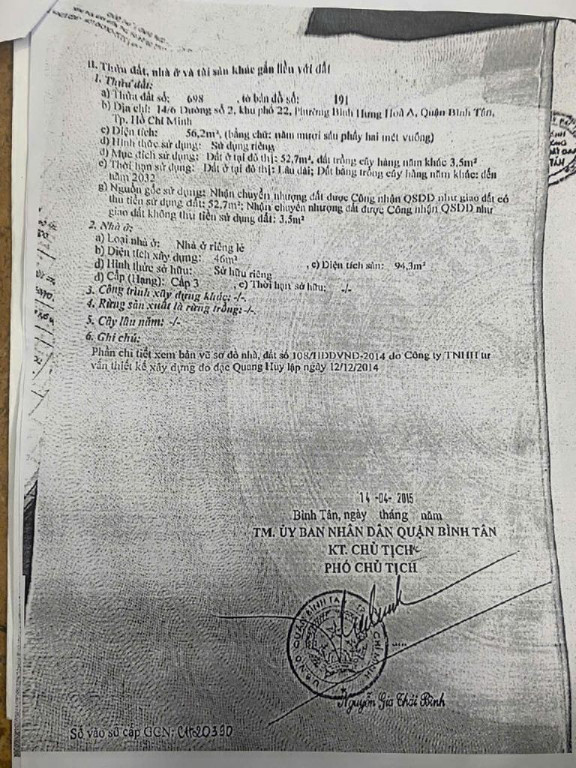 II. Thửa đất, nhà ở và tài sản khác gắn liền với đất
1. Thửa đất:
a) Thửa đất số: 698 , tờ bản đồ số: 191
b) Địa chỉ: 14/6 Đường số 2, khu phố 22, Phường Bình Hưng Hoà A, Quận Bình Tân,
Tp. Hồ Chí Minh
c) Diện tích: 56,2m², (bằng chữ: năm mươi sáu phẩy hai mét vuông)
d) Hình thức sử dụng: Sử dụng riêng
đ) Mục đích sử dụng: Đất ở tại đô thị: 52,7m², đất trồng cây hàng năm khác 3,5m²
e) Thời hạn sử dụng: Đất ở tại đô thị: Lâu dài; Đất bằng trồng cây hàng năm khác: đến
năm 2032
g) Nguồn gốc sử dụng: Nhận chuyển nhượng đất được Công nhận QSDĐ như giao đất có
thu tiền sử dụng đất: 52,7m²; Nhận chuyển nhượng đất được Công nhận QSDĐ như
giao đất không thu tiền sử dụng đất: 3,5m²
2. Nhà ở:
a) Loại nhà ở: Nhà ở riêng lẻ
b) Diện tích xây dựng: 46m² , c) Diện tích sàn: 94,3m²
d) Hình thức sở hữu: Sở hữu riêng
đ) Cấp (Hạng): Cấp 3 , e) Thời hạn sở hữu: -/-
3. Công trình xây dựng khác: -/-
4. Rừng sản xuất là rừng trồng: -/-
5. Cây lâu năm: -/-
6. Ghi chú:
Phần chi tiết xem bản vẽ sơ đồ nhà, đất số 108/HĐĐVNĐ-2014 do Công ty TNHH tư
vấn thiết kế xây dựng đo đạc Quang Huy lập ngày 12/12/2014
14 -04- 2015
Bình Tân, ngày tháng năm
TM. ỦY BAN NHÂN DÂN QUẬN BÌNH TÂN
KT. CHỦ TỊCH
PHÓ CHỦ TỊCH
Nguyễn Gia Thái Bình
Số vào sổ cấp GCN: